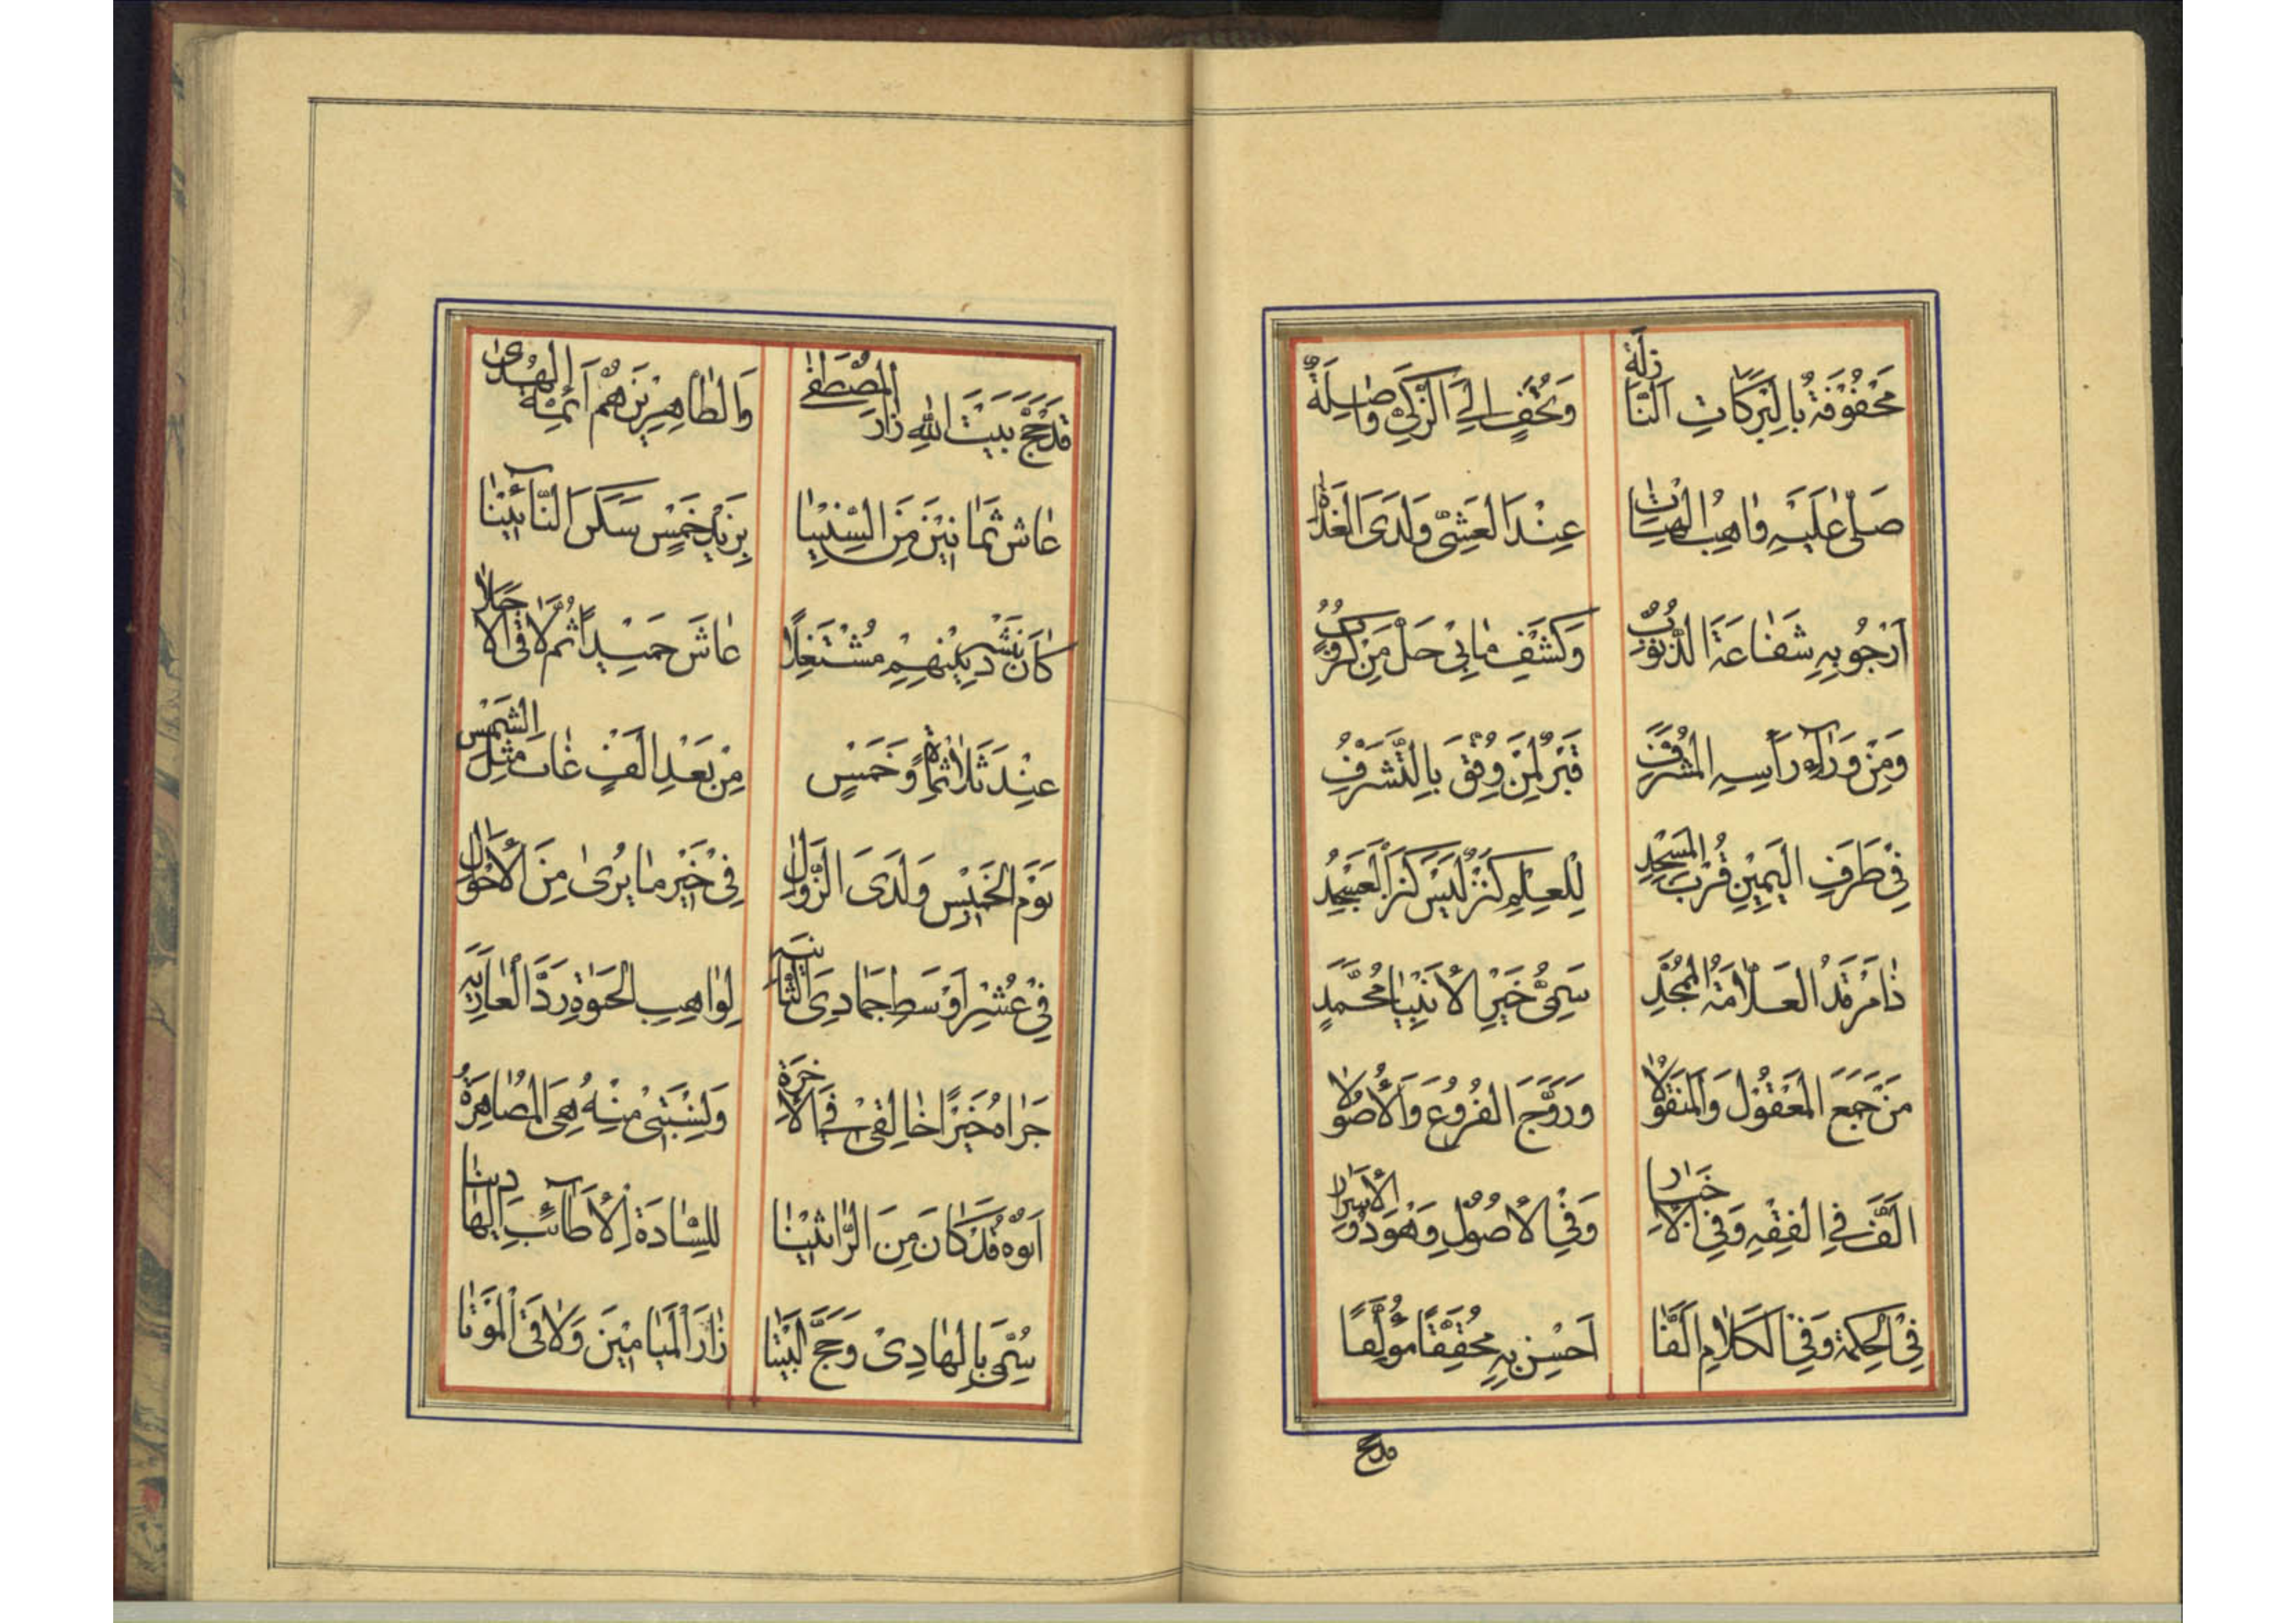 مَحْفُوْفَةٌ بِالْبَرَكَاتِ النَّازِلَةْ وَتُحَفٍ اِلَى الزَّكِيِّ وَاصِلَةْ
صَلّٰى عَلَيْهِ وٰاهِبُ الْهِبَاتِ عِنْدَ الْعَشِيِّ وَلَدَى الْغَدٰاةِ
اَرْجُو بِهِ شَفٰاعَةَ الذُّنُوْبِ وَكَشْفِ مٰا بِيْ حَلَّ مِنْ كُرُوْبِ
وَمِنْ وَرٰآءِ رَأْسِهِ الْمُشَرَّفِ قَبْرٌ لِمَنْ وُفِّقَ بِالتَّشَرُّفِ
فِيْ طَرَفِ الْيَمِيْنِ قُرْبَ الْمَسْجِدِ لِلْعِلْمِ كَنْزٌ لَيْسَ كَنْزَ الْعَسْجَدِ
ذٰا مَرْقَدُ الْعَلّٰامَةِ الْمُمَجَّدِ سَمِيُّ خَيْرِ الْاَنْبِيٰا مُحَمَّدٍ
مَنْ جَمَعَ الْمَعْقُوْلَ وَالْمَنْقُوْلٰا وَرَوَّجَ الْفُرُوْعَ وَالْاُصُوْلٰا
اَلَّفَ فِي الْفِقْهِ وَفِي الْاَخْبٰارِ وَفِي الْاُصُوْلِ وَهْوَ ذُوْ الْاَسْرٰارِ
فِي الْحِكْمَةِ وَفِي الْكَلٰامِ اَلَّفٰا اَحْسِنْ بِهِ مُحَقِّقًا مُؤَلِّفًا
قد حج
قَدْ حَجَّ بَيْتَ اللهِ زٰارَ الْمُصْطَفٰى وَالطّٰاهِرِيْنَ هُمْ اَئِمَّةُ الْهُدٰى
عٰاشَ ثَمٰانِيْنَ مِنَ السِّنِيْنٰا بِزَيْدِ خَمْسٍ سَكَنَ النَّآئِيْنٰا
كٰانَ بِنَشْرِ دِيْنِهِمْ مُشْتَغِلًا عٰاشَ حَمِيْدًا ثُمَّ لٰاقَى الْاَجَلٰا
عِنْدَ ثَلٰاثْمِأَةٍ وَخَمْسٍ مِنْ بَعْدِ اَلْفٍ غٰابَ مِثْلَ الشَّمْسِ
يَوْمَ الْخَمِيْسِ وَلَدَى الزَّوٰالِ فِيْ خَيْرِ مٰا يُرٰى مِنَ الْاَحْوٰالِ
فِيْ عُشْرِ اَوْسَطِ جَمٰادِيَ الثّٰانِيَةِ لِوٰاهِبِ الْحَيٰوةِ رَدَّ الْعٰارِيَةِ
جَزٰاهُ خَيْرًا خٰالِقِيْ فِي الْاٰخِرَةِ وَنِسْبَتِيْ مِنْهُ هِيَ الْمُصٰاهِرَةُ
اَبُوْهُ قَدْ كٰانَ مِنَ الرّٰاثِيْنٰا لِلسّٰادَةِ الْاَطآئِبِ الْهٰادِيْنٰا
سُمِّيَ بِالْهٰادِيْ وَحَجَّ الْبَيْتٰا زٰارَ الْمَيٰامِيْنَ وَلٰاقَى الْمَوْتٰا